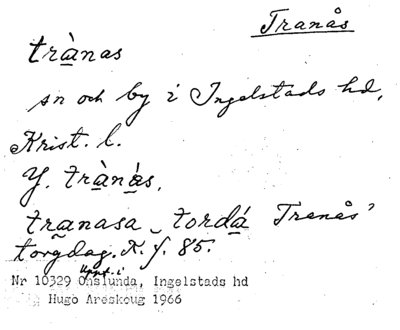 Tranås
trànas
sn och by i Ingelstads hd,
Krist. l.
Y. trànás,
tranasa tordá Tranås'
torgdag. K. f. 85.
Uppt. i
Nr 10329 Onslunda, Ingelstads hd
Hugo Areskoug 1966